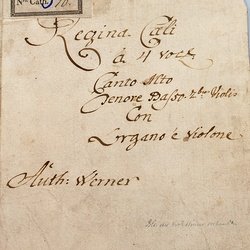 Nro Cat.
Regina Cæli
à 4 voci
Canto Alto
Tenore Basso 2bus Violis
Con
Organo è Violone
Auth: Werner